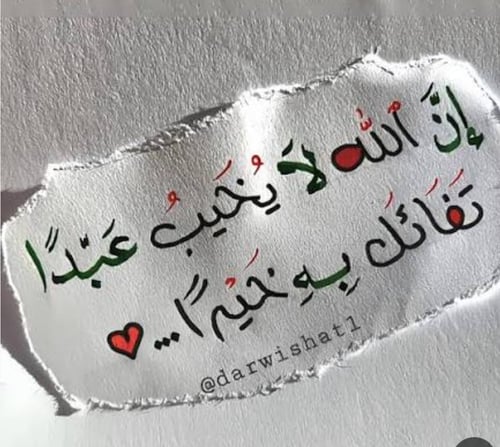 إِنَّ ٱللّٰه لَا يُخَيبُ عَبّدًا
تَفَائَل بِهِ خَيْرًا...
@darwishat1